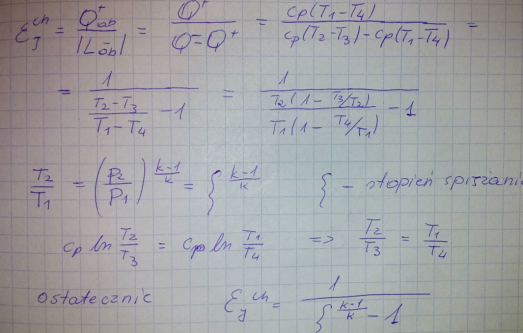 ε_J^ch = Q⁺_ob / |L⁻_ob| = Q⁺ / (Q⁻ - Q⁺) = cp(T₁-T₄) / (cp(T₂-T₃) - cp(T₁-T₄)) =
= 1 / ((T₂-T₃)/(T₁-T₄) - 1) = 1 / (T₂(1 - T₃/T₂) / T₁(1 - T₄/T₁) - 1)
T₂/T₁ = (P₂/P₁)^((k-1)/k) = ξ^((k-1)/k) ξ - stopień sprężania
cp ln T₂/T₃ = cp ln T₁/T₄ => T₂/T₃ = T₁/T₄
ostatecznie ε_y^ch = 1 / (ξ^((k-1)/k) - 1)